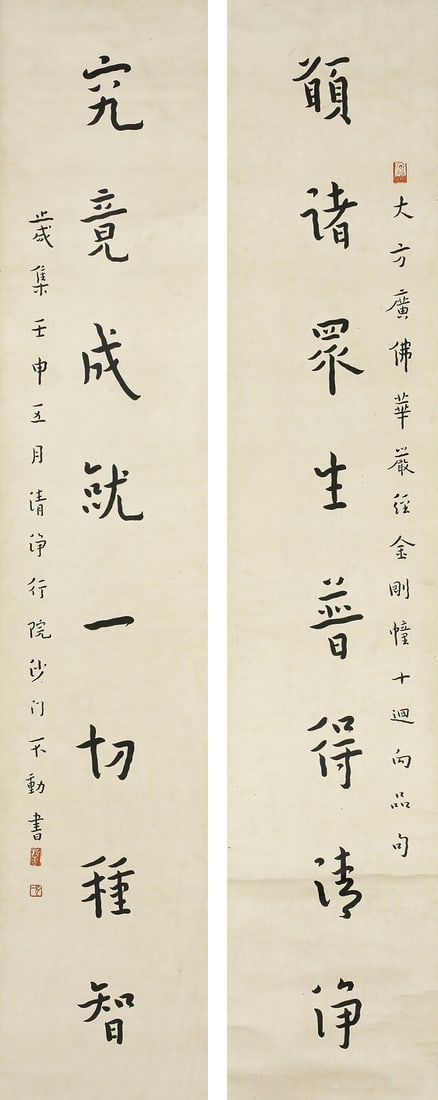 大方廣佛華嚴經金剛幢十迴向品句
願諸眾生普得清淨
究竟成就一切種智
歲集壬申五月清淨行院沙門不動書